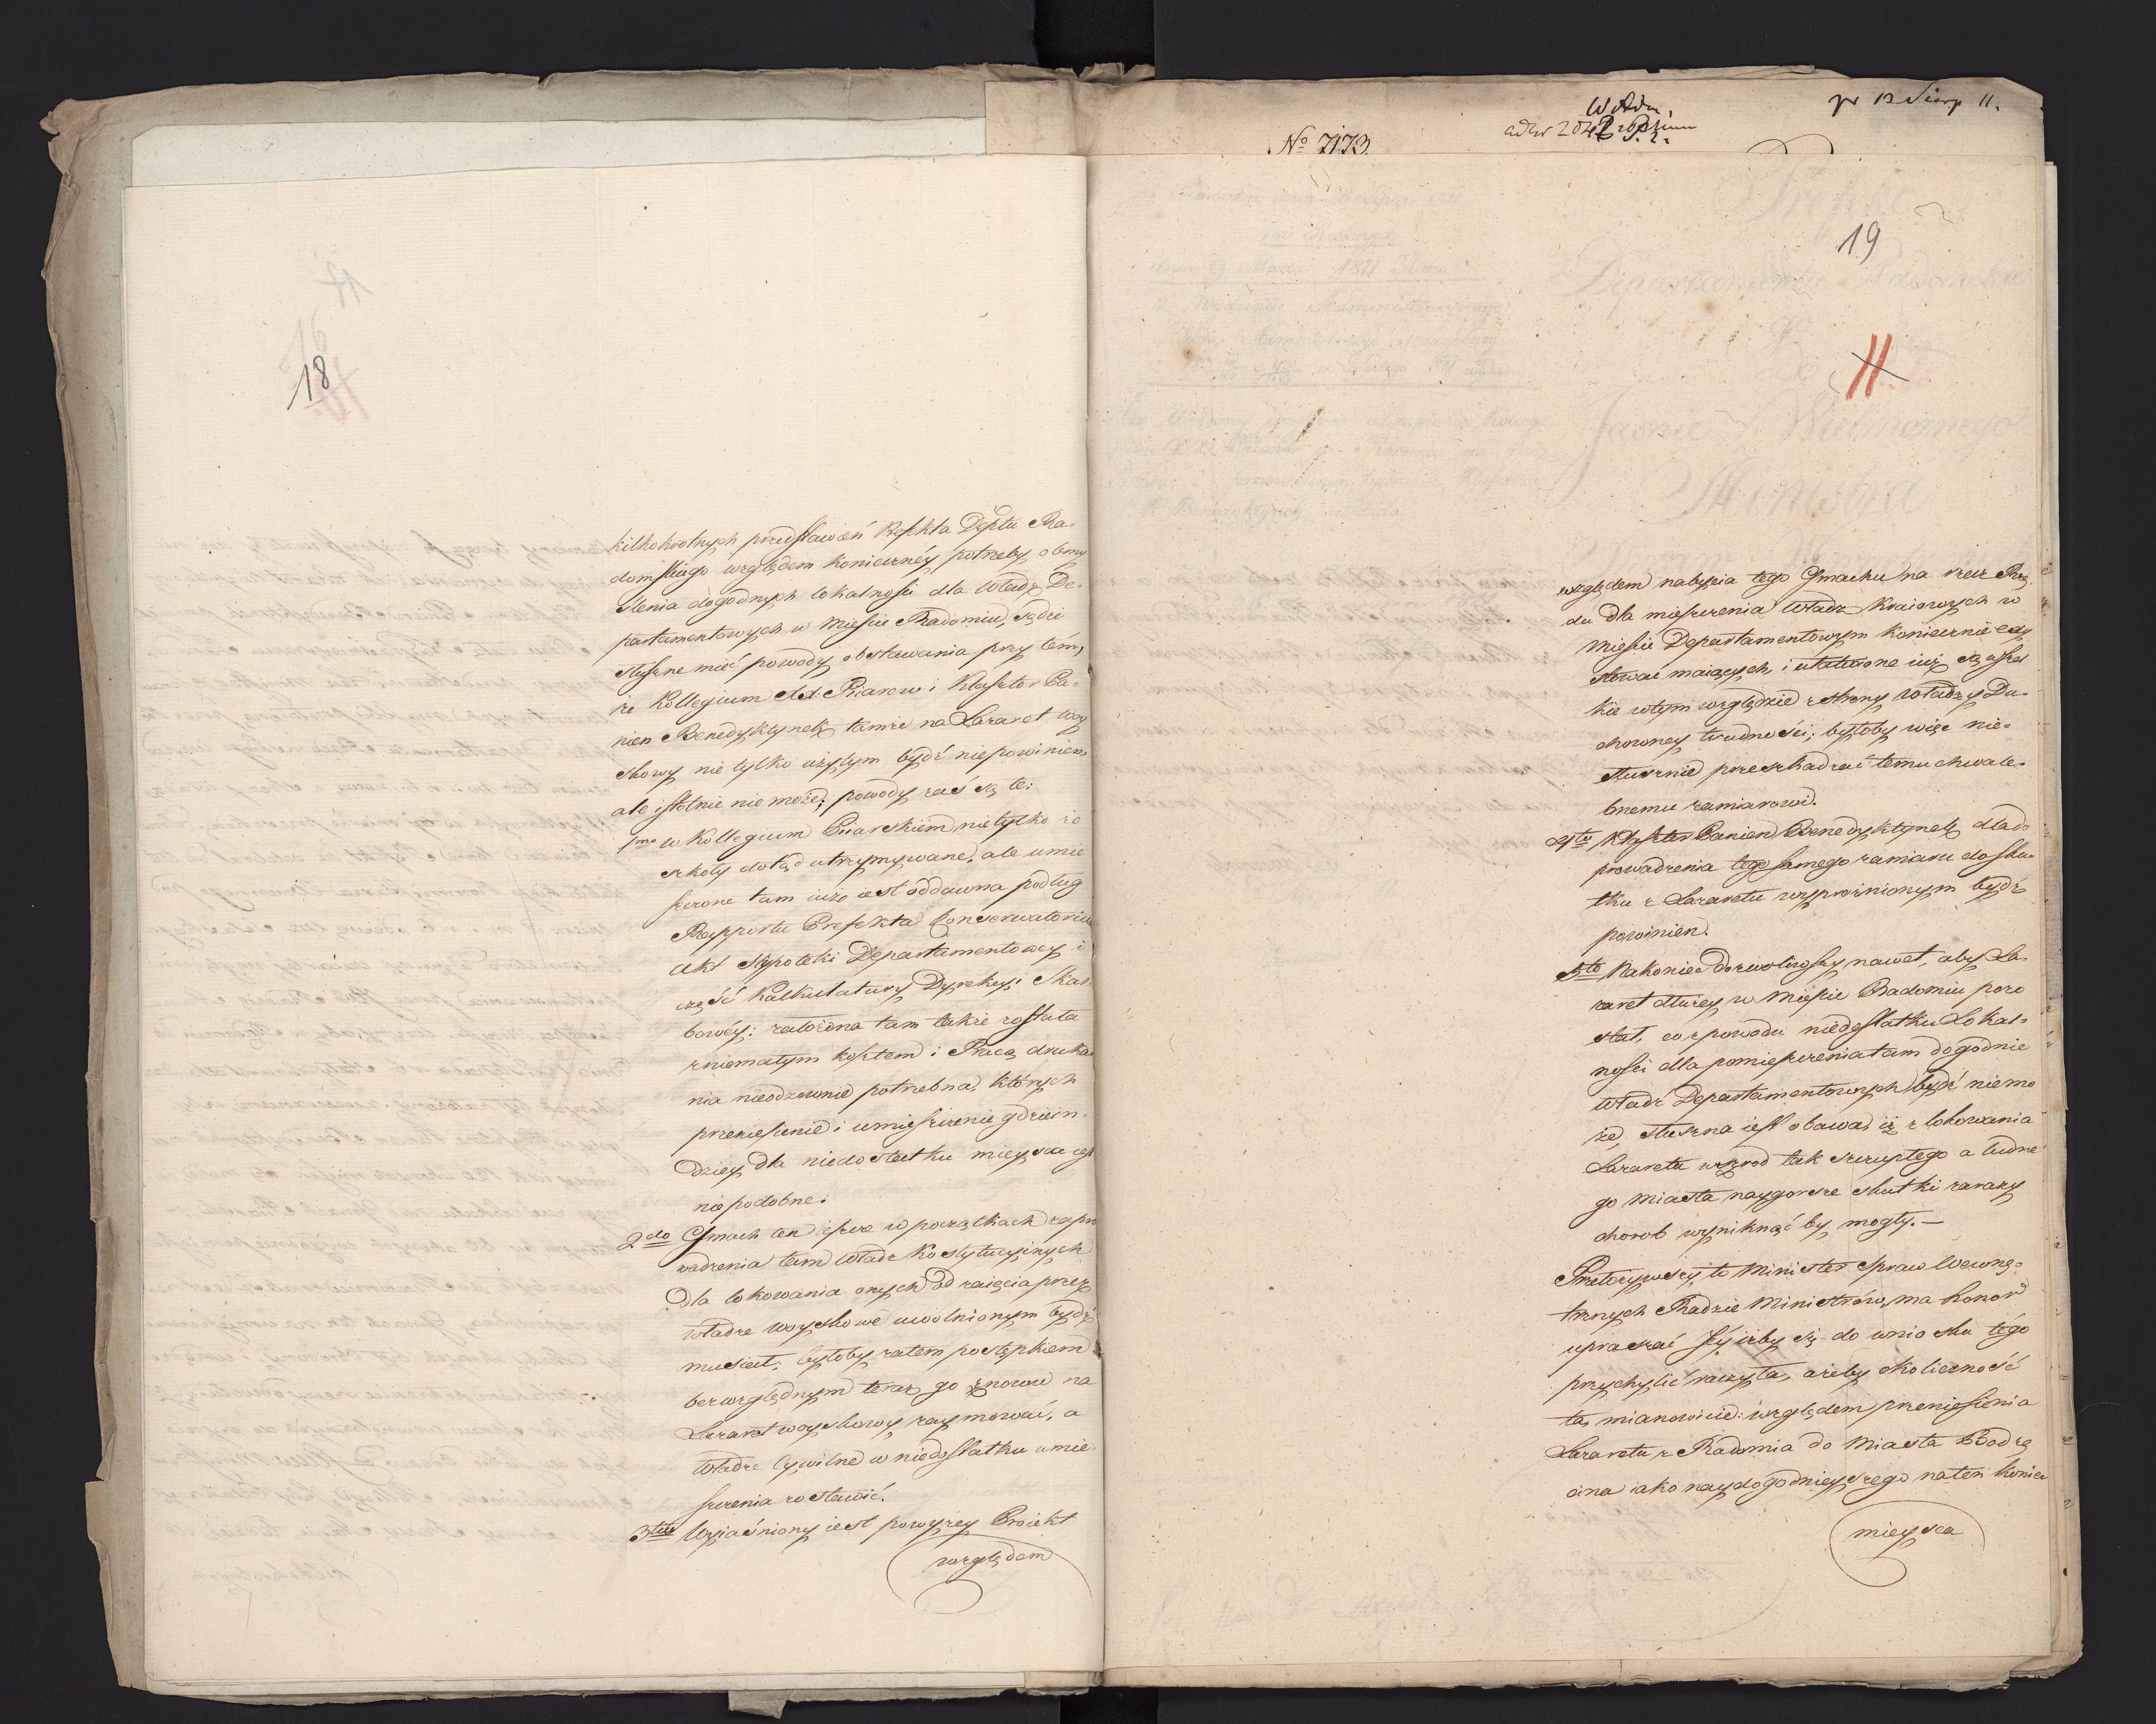 18
kilkokrotnych przedstawień Prefekta Deptu Ra-
domskiego względem konieczney potrzeby obmy
ślenia dogodnych lokalności dla Władz De-
partamentowych w Mieście Radomiu, sądzi
słuszne mieć powody obstawania przy tém,
że Kollegium Xży Piarow i Klasztor Pa-
nien Benedyktynek tamże na Lazaret woy
skowy nie tylko użytym bydź niepowinien,
ale istotnie nie może; powody zaś są te:
1mo w Kollegium Piiarskiem nietylko że
szkoły dotąd utrzymywane, ale umie
szczone tam iuż iest oddawna podług
Rapportu Prefekta Konserwatorium
Akt Hypoteki Departamentowey i
część Kalkulatury Dyrekcyi Skar-
bowéy: założona tam także została
z niemałym kosztem i Pracą druka
nia nieodzownie potrzebna, których
przeniesienie i umieszczenie gdziein-
dziey dla niedostatku mieysca iest
niepodobne.
2do Gmach ten ieszcze w początkach zapro
wadzenia tam Władz Kostytucyinych
dla lokowania onych od zaięcia przez
władze woyskowe uwolnionym bydź
musiał; byłoby zatem postępkiem
bezwzględnym teraz go znowu na
Lazaret woyskowy zaymować, a
Władze Cywilne w niedostatku umie-
szczenia zostawić.
3tio Wyiaśniony iest powyżey Proiekt
względem
No 7173.
pr 13 Sierp 11.
19
11
względem nabycia tego Gmachu na rzecz Rzą
du dla mieszczenia Władz Kraiowych w
Mieście Departamentowym koniecznie exy
stować maiących, i ułatwione iuż są wszel
kie w tym względzie z strony Władzy Du-
chowney trudności; byłoby więc nie-
słusznie przeszkadzać temu chwale-
bnemu zamiarowi.
4to Klasztor Panien Benedyktynek dla do
prowadzenia tego samego zamiaru do sku-
tku z Lazaretu wyprożnionym bydź
powinien.
5to Nakoniec dozwoliwszy nawet, aby La-
zaret dłużey w Mieście Radomiu pozo
stał, co z powodu niedostatku Lokal-
ności dla pomieszczenia tam dogodnie
Władz Departamentowych bydź niemo
że, słuszna iest obawa, iż z lokowania
Lazaretu wśrod tak szczupłego a ludne
go Miasta naygorsze skutki zarazy
chorob wyniknąć by mogły.—
Przełożywszy to Minister Spraw Wewnę-
trznych Radzie Ministrów, ma honor
upraszać Jéy iżby się do wniosku tego
przychylić raczyła, ażeby okoliczność
ta, mianowicie: względem przeniesienia
Lazaretu z Radomia do Miasta Bodzę
cina iako naydogodnieyszego na ten koniec
mieysca